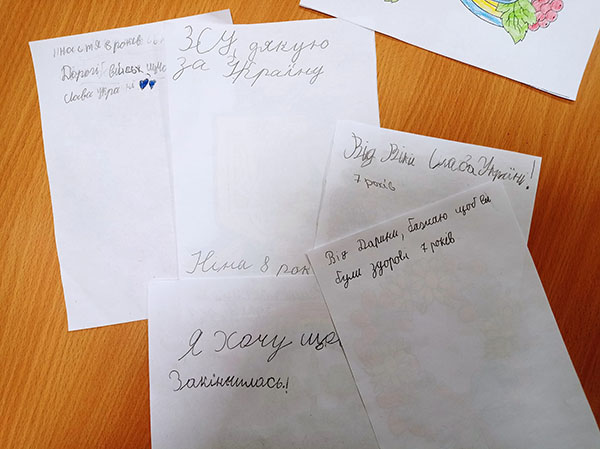 Настя 8 років
Дорогі військ
Слава Украї
ЗСУ, дякую
за Україну
Ніна 8 рок
Від Віки Слава Україні!
7 років
Від Дарини, бажаю щоб ви
були здорові 7 років
Я хочу що
Закіннилась!